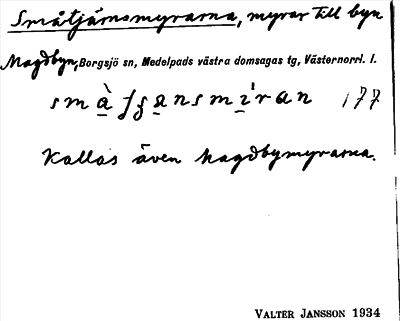 Småtjärnsmyrarna, myrar till byn
Magdbyn, Borgsjö sn, Medelpads västra domsagas tg, Västernorrl. l.
177
Kallas även Magdbymyrarna.
VALTER JANSSON 1934